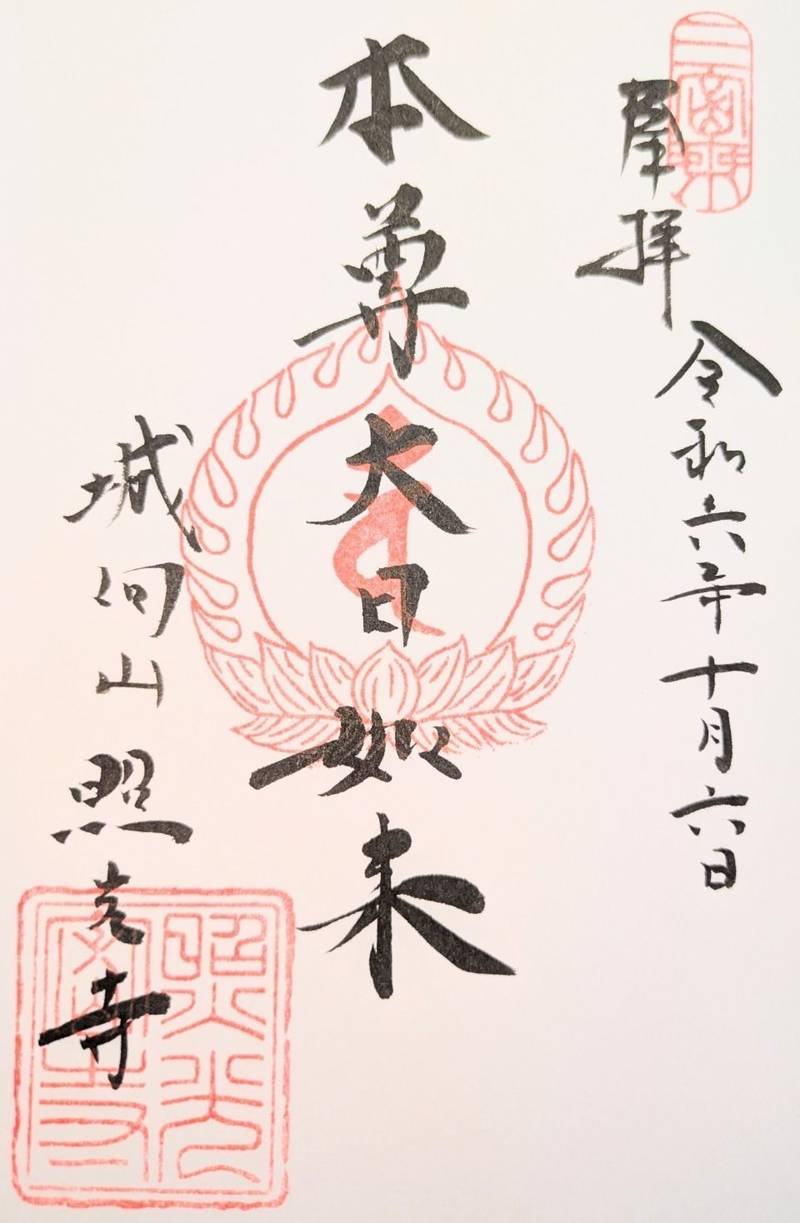 三密乗
拝
令和六年十月六日
本尊
大日如来
城向山
照光寺
照光
密寺